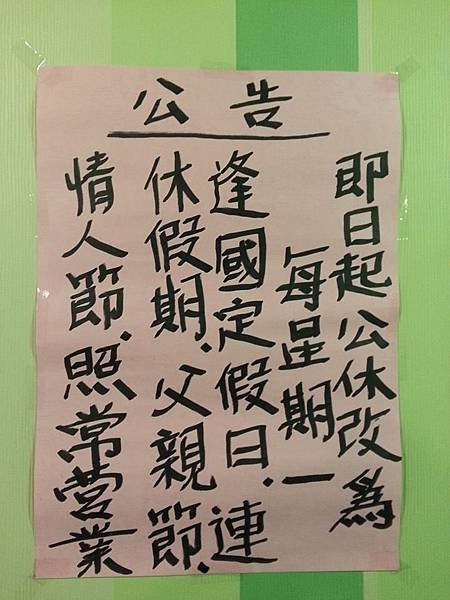 公告
即日起公休改為
每星期一
逢國定假日.連
休假期.父親節.
情人節.照常營業